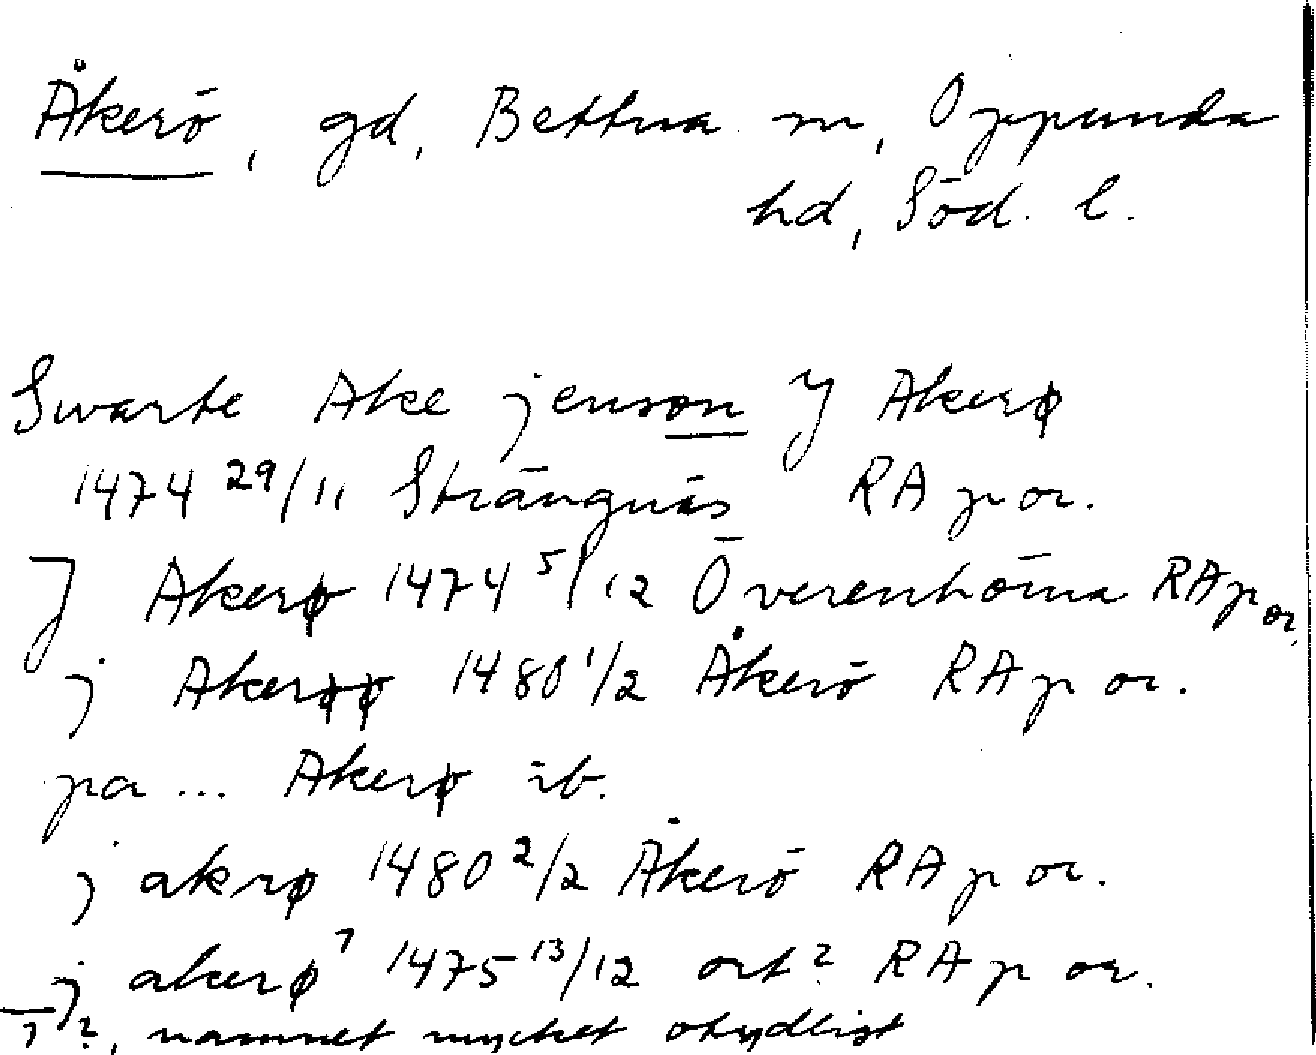 Åkerö, gd, Bettna sn, Oppunda
hd, Söd. l.
Swarte Ake jenson Y Akerø
1474 29/11 Strängnäs RA p or.
J Akerø 1474 5/12 Överenhörna RA p or.
j Akerøø 1480 1/2 Åkerö RA p or.
pa ... Akerø ib.
j akrø 1480 2/2 Åkerö RA p or.
j akerø 1475 13/12 ort? RA p or.
?, namnet mycket otydligt